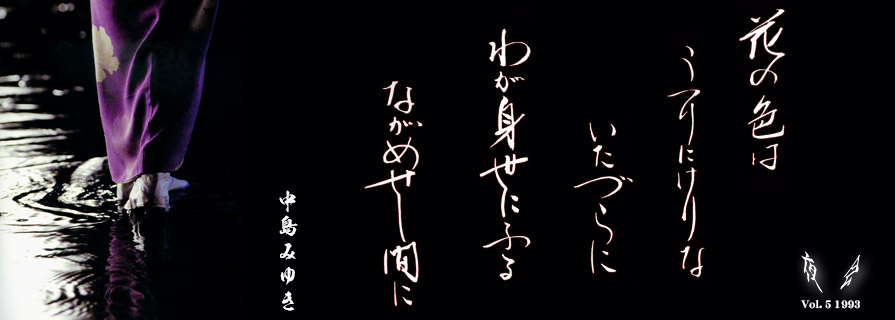 花の色は
うつりにけりな
いたづらに
わが身世にふる
ながめせし間に
中島みゆき
夜会
Vol. 5 1993